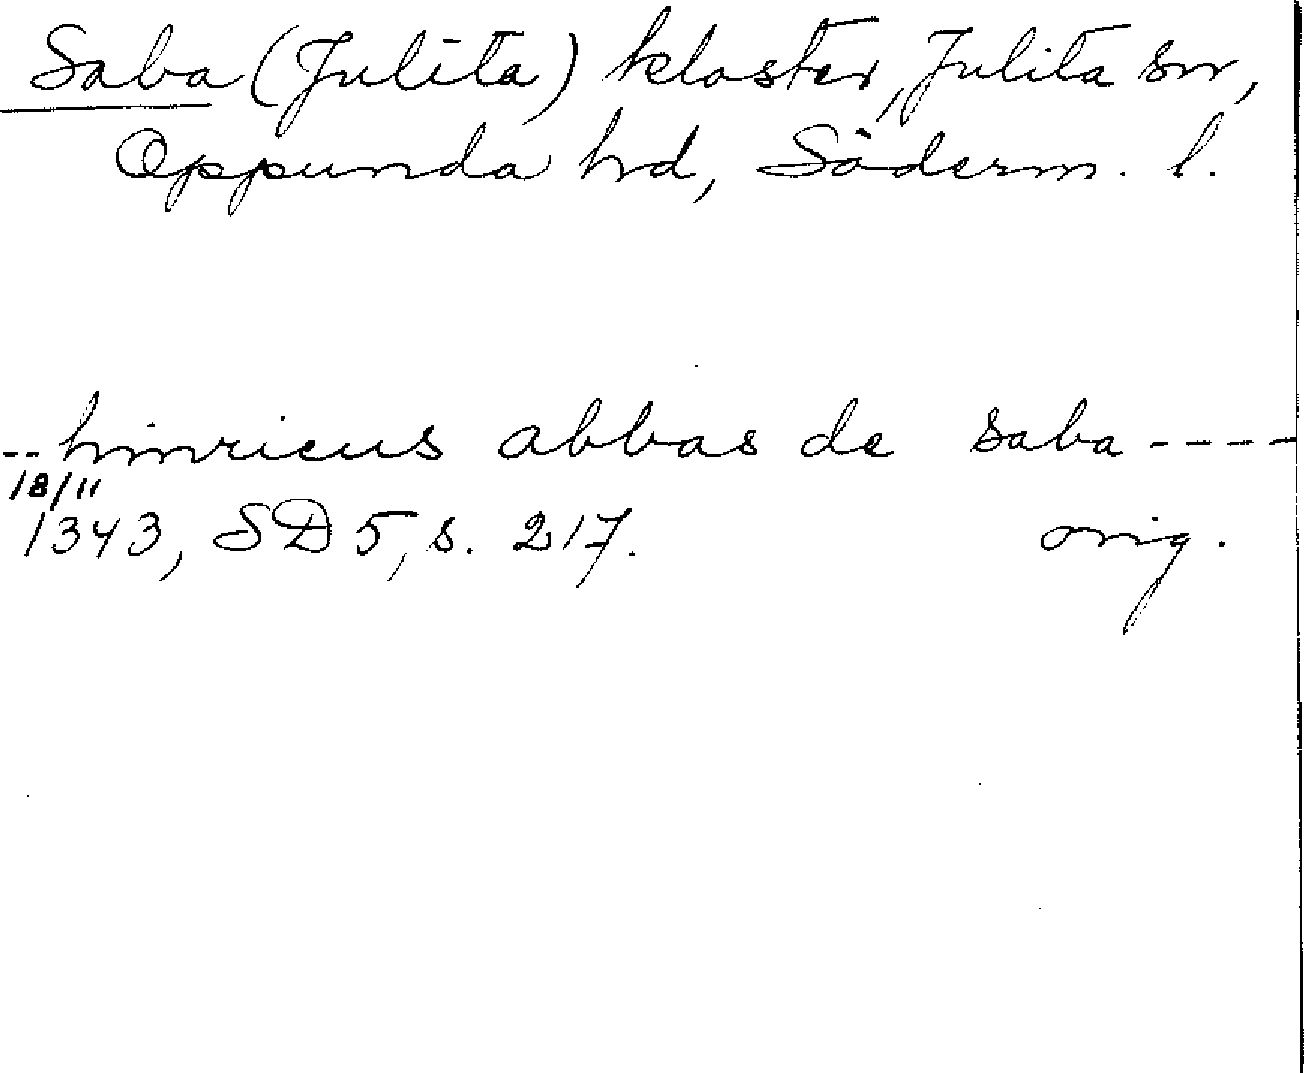 Saba (Julita) kloster, Julita sn,
Oppunda hd, Söderm. l.
-- hinricus abbas de saba ----
18/11
1343, SD 5, s. 217. orig.